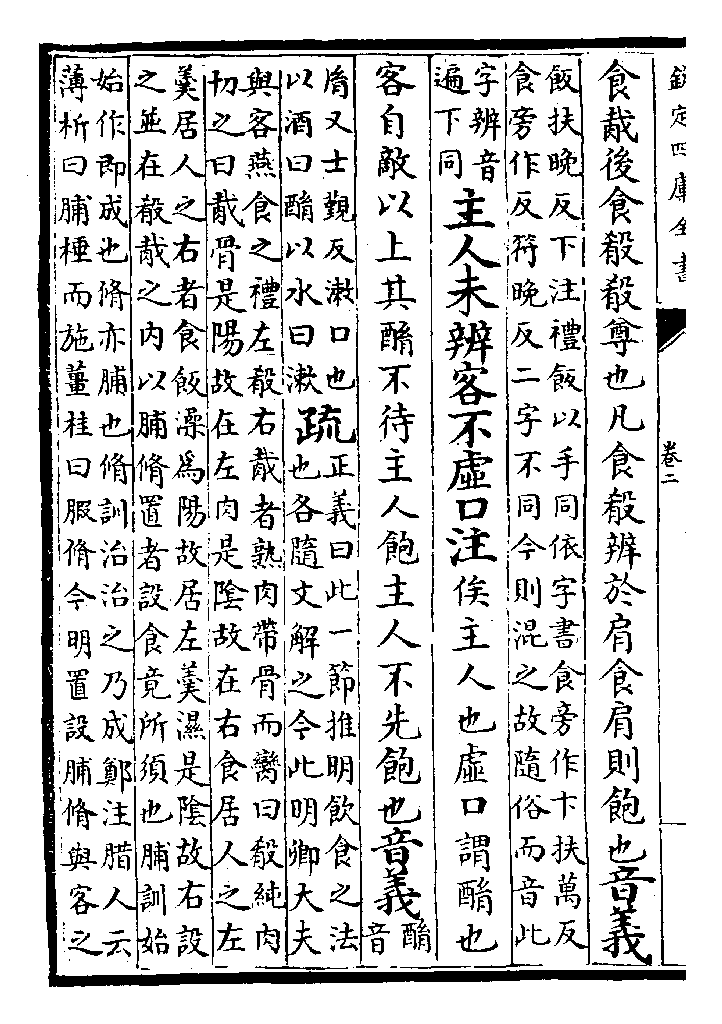 欽定四庫全書
卷二
食胾後食殽殽尊也凡食殽辨於肩食肩則飽也音義
飯扶晚反下注禮飯以手同依字書食旁作卞扶萬反
食旁作反符晚反二字不同今則混之故隨俗而音此
字辨音
遍下同
主人未辨客不虛口注俟主人也虛口謂酳也
客自敵以上其酳不待主人飽主人不先飽也音義
酳
音
胤又士覲反漱口也
以酒曰酳以水曰漱
疏
正義曰此一節推明飲食之法
也各隨文解之今此明卿大夫
與客燕食之禮左殽右胾者熟肉帶骨而臠曰殽純肉
切之曰胾骨是陽故在左肉是陰故在右食居人之左
羹居人之右者食飯燥為陽故居左羹濕是陰故右設
之並在殽胾之内以脯脩置者設食竟所須也脯訓始
始作即成也脩亦脯也脩訓治治之乃成鄭注腊人云
薄析曰脯棰而施薑桂曰腶脩今明置設脯脩與客之